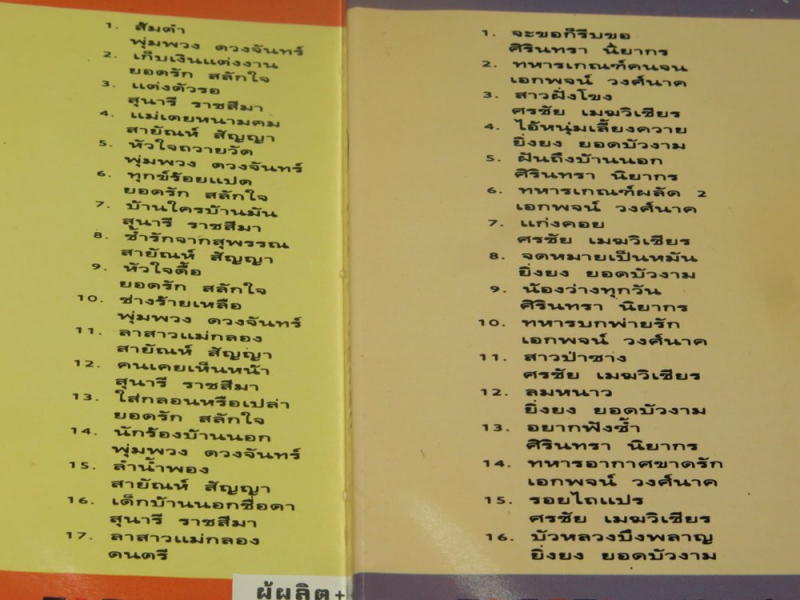 1. ส้มตำ
พุ่มพวง ดวงจันทร์
2. เก็บเงินแต่งงาน
ยอดรัก สลักใจ
3. แต่งตัวรอ
สุนารี ราชสีมา
4. แม่เตยหนามคม
สายัณห์ สัญญา
5. หัวใจถวายวัด
พุ่มพวง ดวงจันทร์
6. ทุกข์ร้อยแปด
ยอดรัก สลักใจ
7. บ้านใครบ้านมัน
สุนารี ราชสีมา
8. ช้ำรักจากสุพรรณ
สายัณห์ สัญญา
9. หัวใจดื้อ
ยอดรัก สลักใจ
10. ช่างร้ายเหลือ
พุ่มพวง ดวงจันทร์
11. ลาสาวแม่กลอง
สายัณห์ สัญญา
12. คนเคยเห็นหน้า
สุนารี ราชสีมา
13. ใส่กลอนหรือเปล่า
ยอดรัก สลักใจ
14. นักร้องบ้านนอก
พุ่มพวง ดวงจันทร์
15. ลำน้ำพอง
สายัณห์ สัญญา
16. เด็กบ้านนอกชื่อดา
สุนารี ราชสีมา
17. ลาสาวแม่กลอง
ดนตรี
ผู้ผลิต+
1. จะขอก็รีบขอ
ศิรินทรา นิยากร
2. ทหารเกณฑ์คนจน
เอกพจน์ วงศ์นาค
3. สาวฝั่งโขง
ศรชัย เมฆวิเชียร
4. ไอ้หนุ่มเลี้ยงควาย
ยิ่งยง ยอดบัวงาม
5. ฝันถึงบ้านนอก
ศิรินทรา นิยากร
6. ทหารเกณฑ์ผลัด 2
เอกพจน์ วงศ์นาค
7. แก่งคอย
ศรชัย เมฆวิเชียร
8. จดหมายเป็นหมัน
ยิ่งยง ยอดบัวงาม
9. น้องว่างทุกวัน
ศิรินทรา นิยากร
10. ทหารบกพ่ายรัก
เอกพจน์ วงศ์นาค
11. สาวป่าซาง
ศรชัย เมฆวิเชียร
12. ลมหนาว
ยิ่งยง ยอดบัวงาม
13. อยากฟังซ้ำ
ศิรินทรา นิยากร
14. ทหารอากาศขาดรัก
เอกพจน์ วงศ์นาค
15. รอยไถแปร
ศรชัย เมฆวิเชียร
16. บัวหลวงบึงพลาญ
ยิ่งยง ยอดบัวงาม